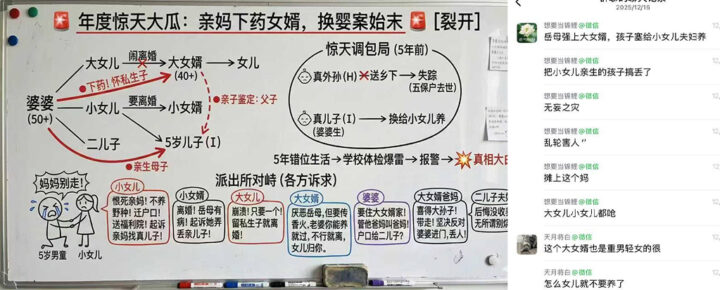 🚨 年度惊天大瓜：亲妈下药女婿，换婴案始末 🚨 [裂开]
大女儿
闹离婚
大女婿
(40+)
女儿
下药！怀私生子
婆婆
(50+)
小女儿
要离婚
小女婿
亲子鉴定：父子
二儿子
5岁儿子(I)
亲生母子
惊天调包局
(5年前)
真外孙(H)
送乡下
失踪
(五保户去世)
真儿子(I)
(婆婆生)
换给小女儿养
5年错位生活→学校体检爆雷→报警→💥真相大白
派出所对峙 (各方诉求)
妈妈别走！
5岁男童
小女儿
小女儿
恨死亲妈！不养
野种！迁户口！
送福利院！起诉
亲妈找真儿子！
小女婿
离婚！岳母有
病！起诉她弄
丢亲儿子！
大女儿
崩溃！只要一个！
留私生子就离
婚！
大女婿
厌恶岳母，但要传
香火，老婆你能养
就过，不行就离，
女儿归你。
婆婆
要住大女婿家！
管他爸妈叫爸妈！
户口给二儿子？
大女婿爸妈
喜得大孙子！
带走！坚决反对
婆婆进门，丢人！
二儿子夫
后悔没收
无所谓别
2025/12/15
想要当锦鲤@微信
岳母强上大女婿，孩子塞给小女儿夫妇养
12,
想要当锦鲤@微信
把小女儿亲生的孩子搞丢了
12,
想要当锦鲤@微信
无妄之灾
12,
想要当锦鲤@微信
乱轮害人
12,
想要当锦鲤@微信
摊上这个妈
12,
想要当锦鲤@微信
大女儿小女儿都呛
12,
天月将白@微信
这个大女婿也是重男轻女的很
12,
天月将白@微信
怎么女儿就不要养了
12,